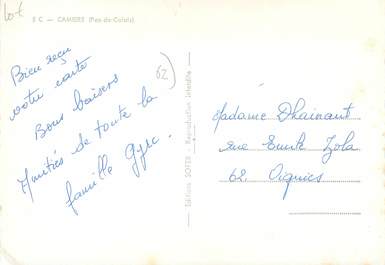 Lot
5 C — CAMIERS (Pas-de-Calais)
Bien reçu
votre carte
Bons baisers
Amitiés de toute la
famille
62
Editions SOFER - Reproduction interdite
Madame Dhainaut
rue Emile Zola
62. Oignies